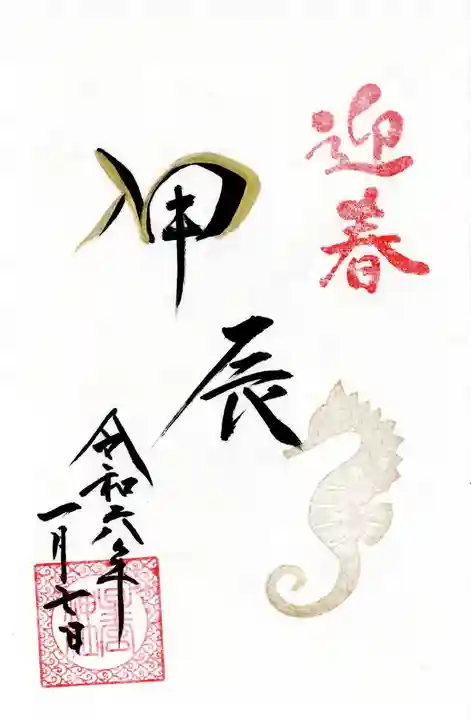 迎春
甲
辰
令和六年
一月七日